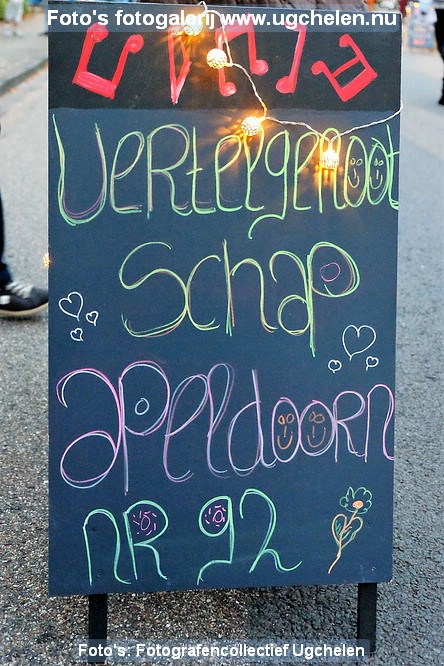 Foto's fotogalerij www.ugchelen.nu
Vertelgenoot
schap
apeldoorn
NR 92
Foto's: Fotografencollectief Ugchelen